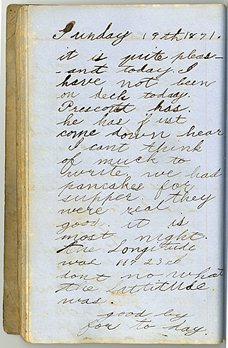 Sunday 19th 1871.
it is quite pleas-
-ant today I
have not been
on deck today
Prescott has.
he has just
come down hear
I cant think
of much to
write we had
pancakes for
supper they
were real
good it is
most night.
the Longitude
was 117 23
dont no what
the latitude
was.
good by
for to day.